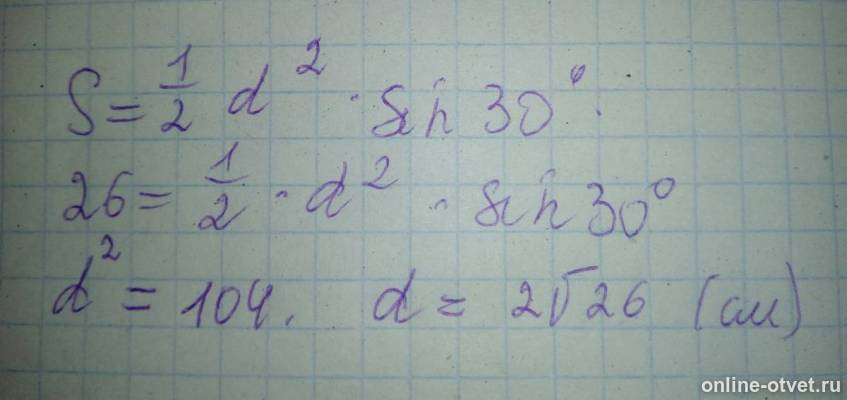 S = 1/2 d² · sin 30°.
26 = 1/2 · d² · sin 30°
d² = 104. d = 2√26 (см)
online-otvet.ru